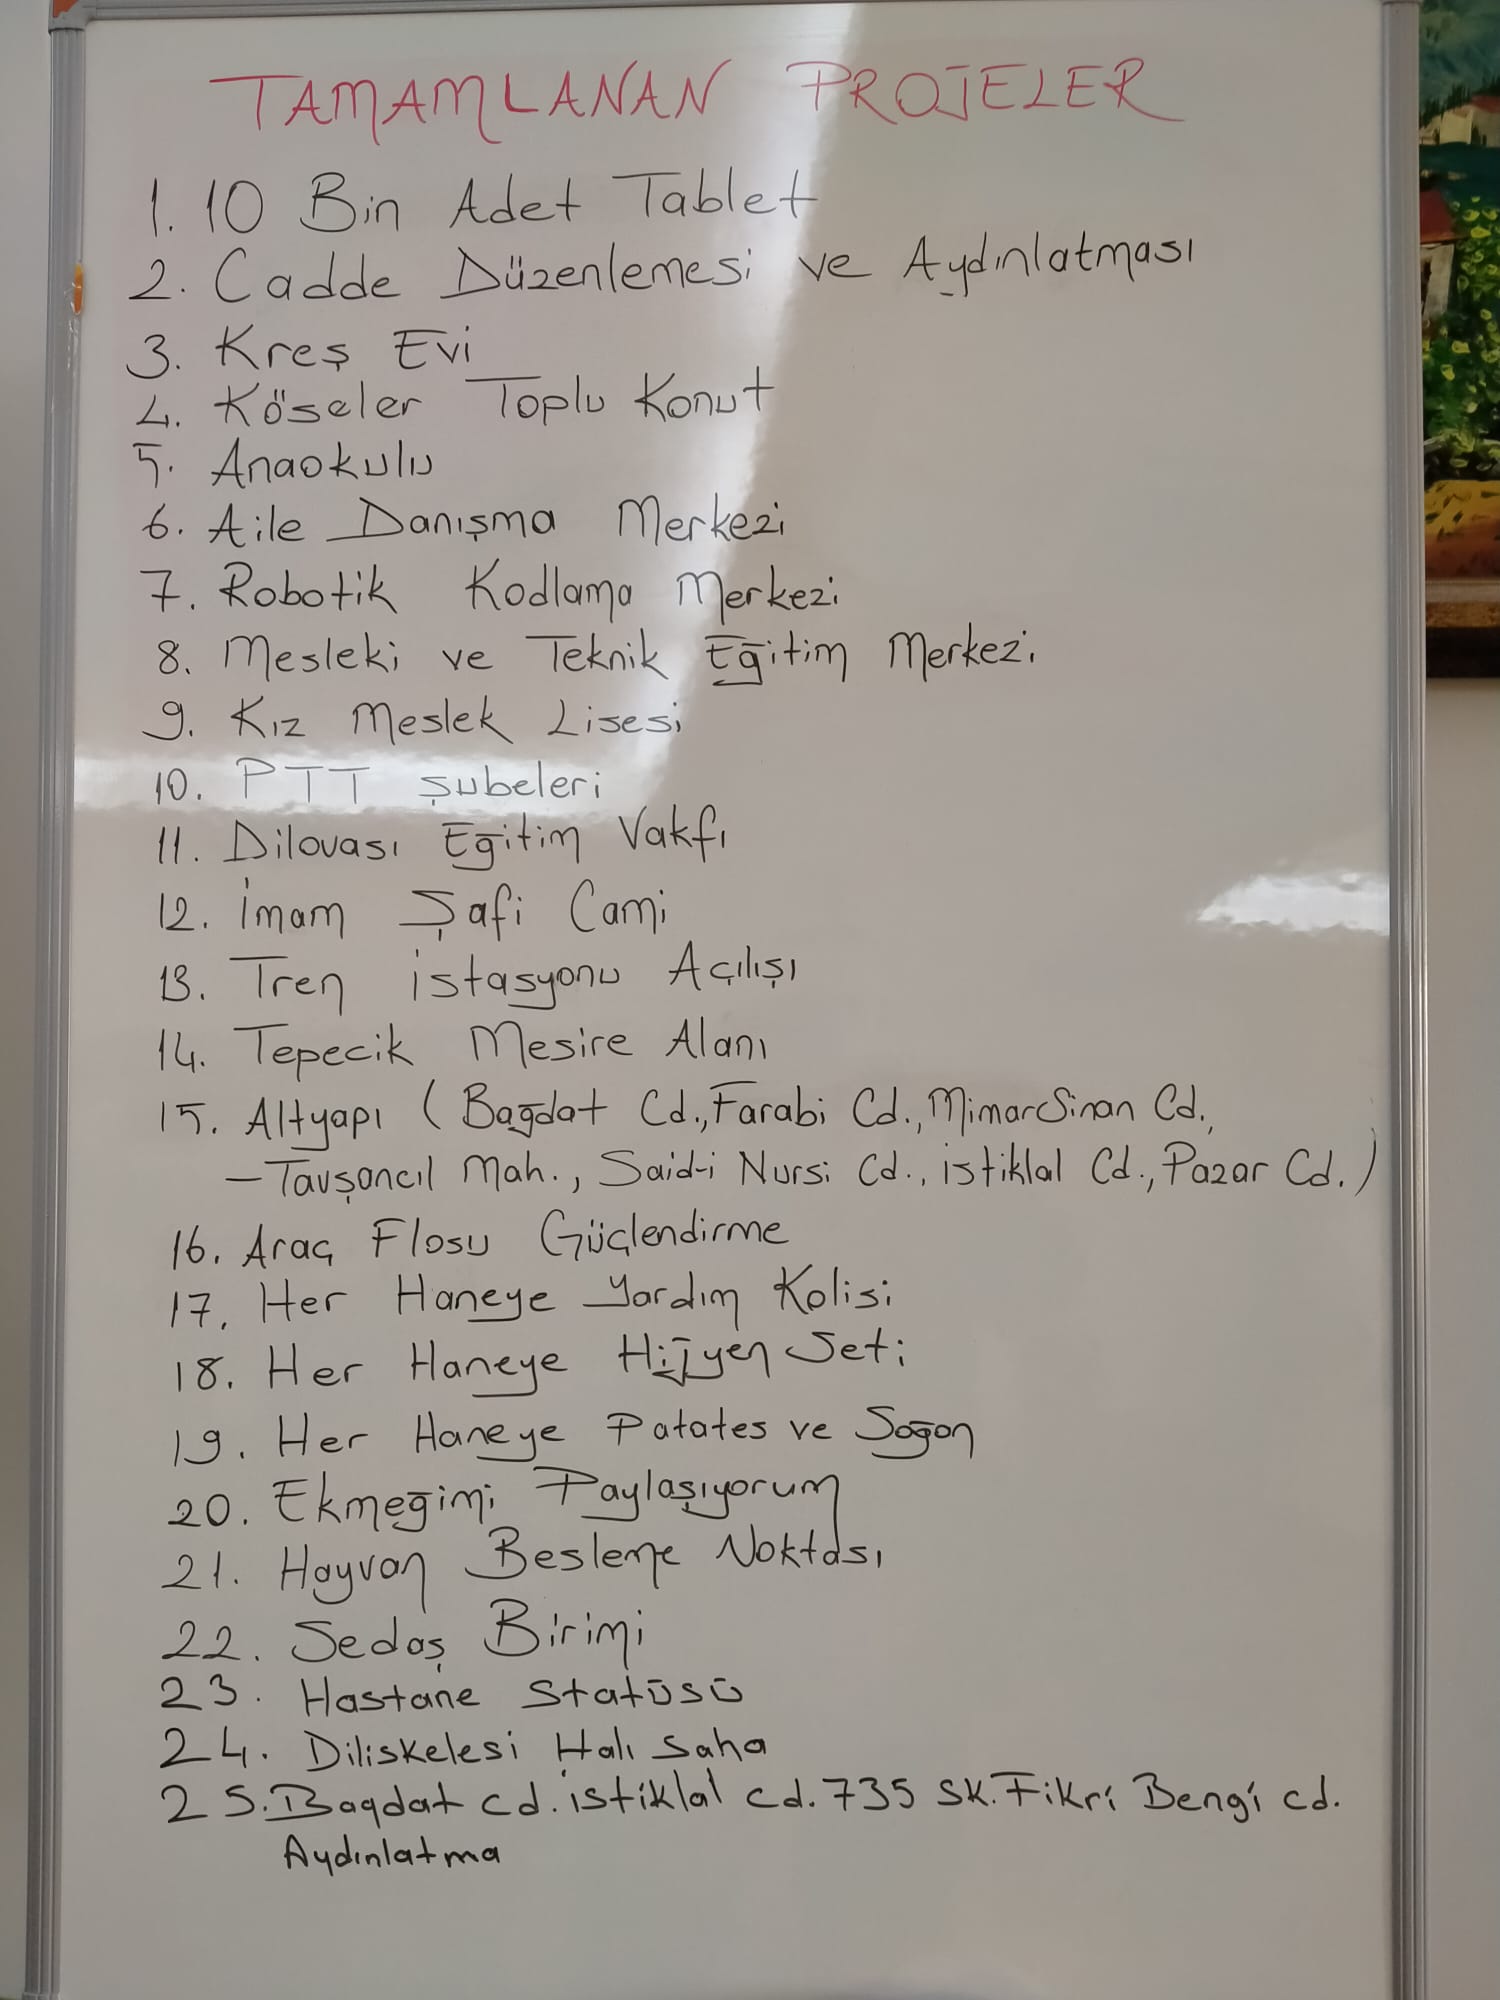 TAMAMLANAN PROJELER
1. 10 Bin Adet Tablet
2. Cadde Düzenlemesi ve Aydınlatması
3. Kreş Evi
4. Köseler Toplu Konut
5. Anaokulu
6. Aile Danışma Merkezi
7. Robotik Kodlama Merkezi
8. Mesleki ve Teknik Eğitim Merkezi
9. Kız Meslek Lisesi
10. PTT Şubeleri
11. Dilovası Eğitim Vakfı
12. İmam Şafi Cami
13. Tren istasyonu Açılışı
14. Tepecik Mesire Alanı
15. Altyapı (Bağdat Cd., Farabi Cd., Mimar Sinan Cd.,
- Tavşancıl Mah., Said-i Nursi Cd., istiklal Cd., Pazar Cd.)
16. Araç Flosu Güçlendirme
17. Her Haneye Yardım Kolisi
18. Her Haneye Hijyen Seti
19. Her Haneye Patates ve Soğan
20. Ekmeğimi Paylaşıyorum
21. Hayvan Besleme Noktası
22. Sedaş Birimi
23. Hastane Statüsü
24. Diliskelesi Halı Saha
25. Bagdat cd. istiklal cd. 735 sk. Fikri Bengi cd.
Aydınlatma